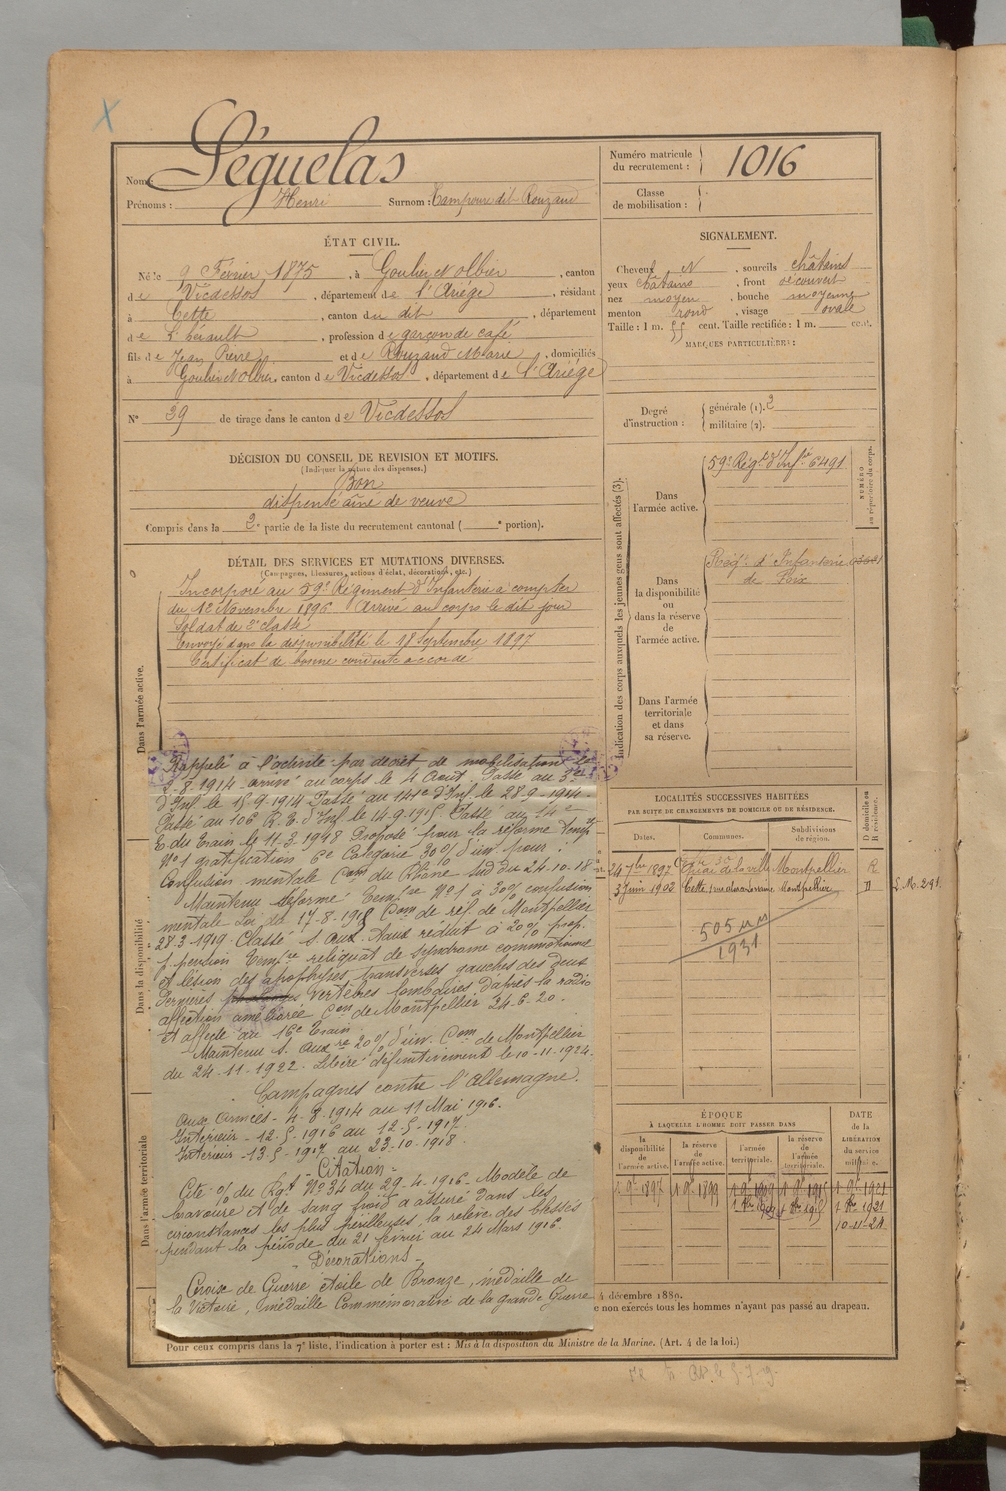 Nom : Séguelas
Prénoms : Henri Surnom : dit Rouzaud
Numéro matricule du recrutement : 1016
Classe de mobilisation :
ÉTAT CIVIL.
Né le 9 Février 1875, à Goulier et Olbier, canton
de Vicdessos, département de l'Ariège, résidant
à Cette, canton du dit, département
de L'hérault, profession de garçon de café
fils de Jean Pierre et de Rouzaud Marie, domiciliés
à Goulier et Olbier, canton de Vicdessos, département de l'Ariège
N° 39 de tirage dans le canton de Vicdessos
SIGNALEMENT.
Cheveux N, sourcils châtains
yeux châtains, front découvert
nez moyen, bouche moyenne
menton rond, visage ovale
Taille : 1 m. 55 cent. Taille rectifiée : 1 m. cent.
MARQUES PARTICULIÈRES :
Degré d'instruction : générale (1). 3
militaire (2).
DÉCISION DU CONSEIL DE REVISION ET MOTIFS.
(Indiquer la nature des dispenses.)
Bon
dispensé aîné de veuve
Compris dans la 2e partie de la liste du recrutement cantonal ( e portion).
DÉTAIL DES SERVICES ET MUTATIONS DIVERSES.
(Campagnes, blessures, actions d'éclat, décorations, etc.)
Dans l'armée active.
Incorporé au 59e Régiment d'Infanterie à compter
du 1er Novembre 1896 Arrivé au corps le dit jour
Soldat de 2e classe
Envoyé dans la disponibilité le 18 Septembre 1897
Certificat de bonne conduite accordé
Dans la disponibilité
Dans l'armée territoriale
Rappelé à l'activité par décret de mobilisation
2-8-1914 arrivé au corps le 4 Aout. Passé au
d'Inf le 15-9-1914 Passé au 141e d'Inf. le 28-9-1914.
Passé au 106 R. T. d'Inf le 14-9-1915. Passé au 14e
E du Train le 11-3-1918 Proposé pour la réforme
N°1 gratification 6e Catégorie 30% d'inv. pour :
Confusion mentale Com du Rhône Sud du 24-10-18
Maintenu Réformé Tempre N°1 à 30% confusion
mentale Loi du 17-8-1918 Com de réf. de Montpellier
28-3-1919. Classé S. aux. Taux réduit à 20% prop.
1. pension Tempre reliquat de syndrome commotionnel
et lésion des apophyses transverses gauches des deux
dernières vertèbres lombaires d'après la radio
affection améliorée Con de Montpellier 24-6-20.
et affecté au 16e Train
Maintenu S. auxre 20% d'inv. Com de Montpellier
du 24-11-1922. Libéré définitivement le 10-11-1924.
Campagnes contre l'Allemagne.
Aux armées - 4-8-1914 au 11 Mai 1916.
Intérieur - 12-5-1916 au 12-5-1917.
Intérieur - 13-5-1917 au 23-10-1918.
- Citation -
Cité % du Rgt N°34 du 29-4-1916. Modèle de
bravoure et de sang froid a assuré dans les
circonstances les plus périlleuses, la relève des blessés
pendant la période du 21 février au 24 Mars 1916
- Décorations -
Croix de Guerre étoile de Bronze, médaille de
la Victoire, Médaille Commémorative de la Grande Guerre
Indication des corps auxquels les jeunes gens sont affectés (3).
NUMÉRO au répertoire du corps.
Dans l'armée active.
59e Régt d'Infie 6491
Dans la disponibilité ou dans la réserve de l'armée active.
Régt d'Infanterie
de Foix
Dans l'armée territoriale et dans sa réserve.
LOCALITÉS SUCCESSIVES HABITÉES
PAR SUITE DE CHANGEMENTS DE DOMICILE OU DE RÉSIDENCE.
Dates. Communes. Subdivisions de région. D domicile ou R résidence.
24 7bre 1897 Montpellier R
3 Juin 1902 Cette Montpellier D
505
1931
ÉPOQUE
À LAQUELLE L'HOMME DOIT PASSER DANS
la disponibilité de l'armée active.
la réserve de l'armée active.
l'armée territoriale.
la réserve de l'armée territoriale.
DATE de la LIBÉRATION du service militaire.
1 9bre 1897 1 9bre 1899
10-11-24
4 décembre 1889.
non exercés tous les hommes n'ayant pas passé au drapeau.
Pour ceux compris dans la 7e liste, l'indication à porter est : Mis à la disposition du Ministre de la Marine. (Art. 4 de la loi.)